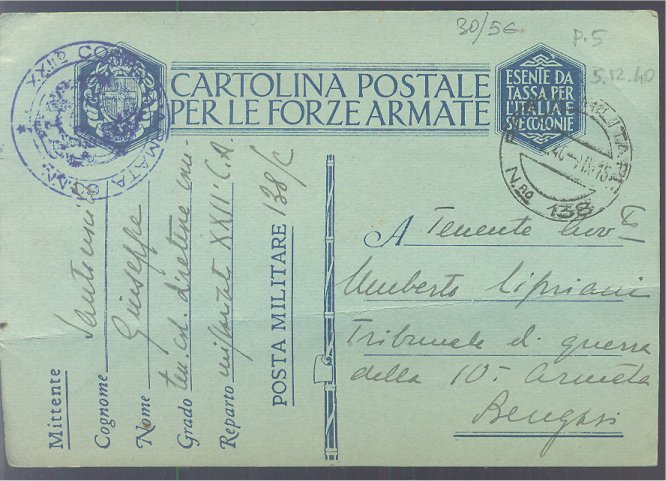 30/56
P.5
5.12.40
XXII° CORPO D'ARMATA
CARTOLINA POSTALE
PER LE FORZE ARMATE
ESENTE DA
TASSA PER
L'ITALIA E
SUE COLONIE
POSTA MILITARE
N.ro 138
A Tenente Avv
Umberto Cipriani
Tribunale d. guerra
della 10ª Armata
Bengasi
Mittente
Cognome
Nome Giuseppe
Grado ten. col. direttore
Reparto XXII° C.A.
POSTA MILITARE 138/C